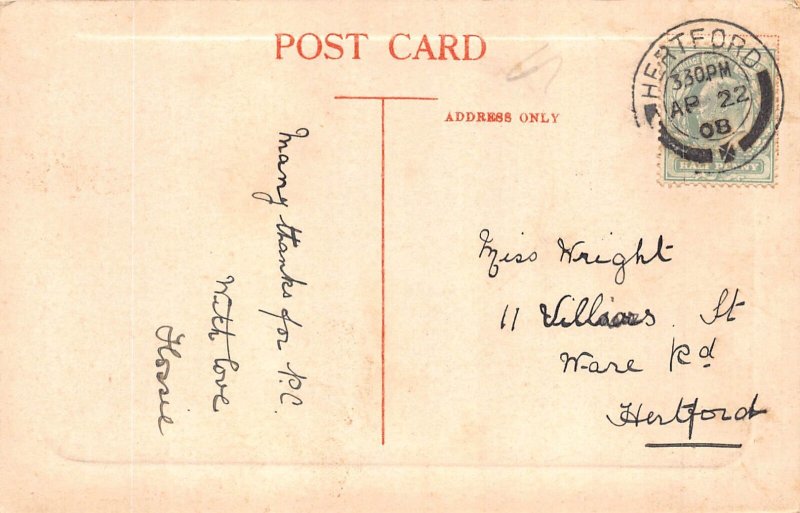 POST CARD
ADDRESS ONLY
HERTFORD
3 30 PM
AP 22
08
HALF PENNY
Many thanks for P.C.
With love
Flossie
Miss Wright
11 Villiers St
Ware Rd
Hertford